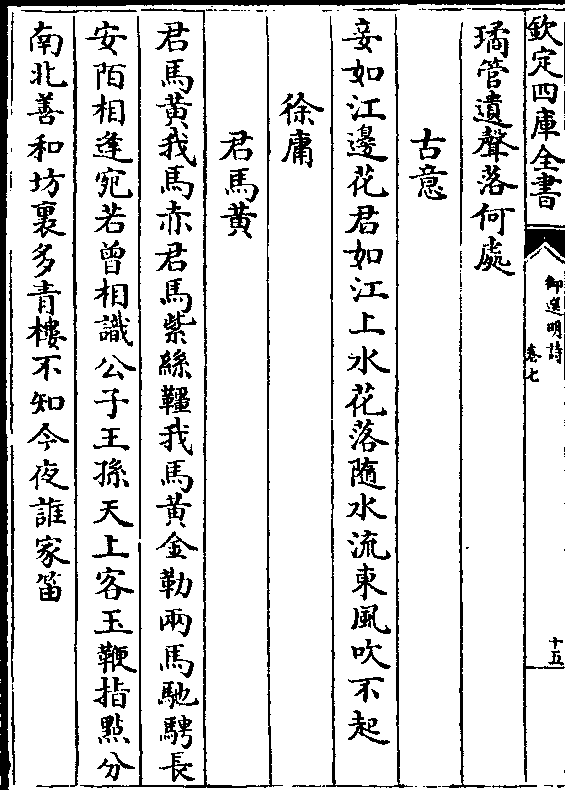 欽定四庫全書
御選明詩
卷七
十五
璚管遺聲落何處
古意
妾如江邊花君如江上水花落隨水流東風吹不起
徐庸
君馬黃
君馬黃我馬赤君馬紫絲韁我馬黃金勒兩馬馳騁長
安陌相逢宛若曾相識公子王孫天上客玉鞭指點分
南北善和坊裏多青樓不知今夜誰家笛